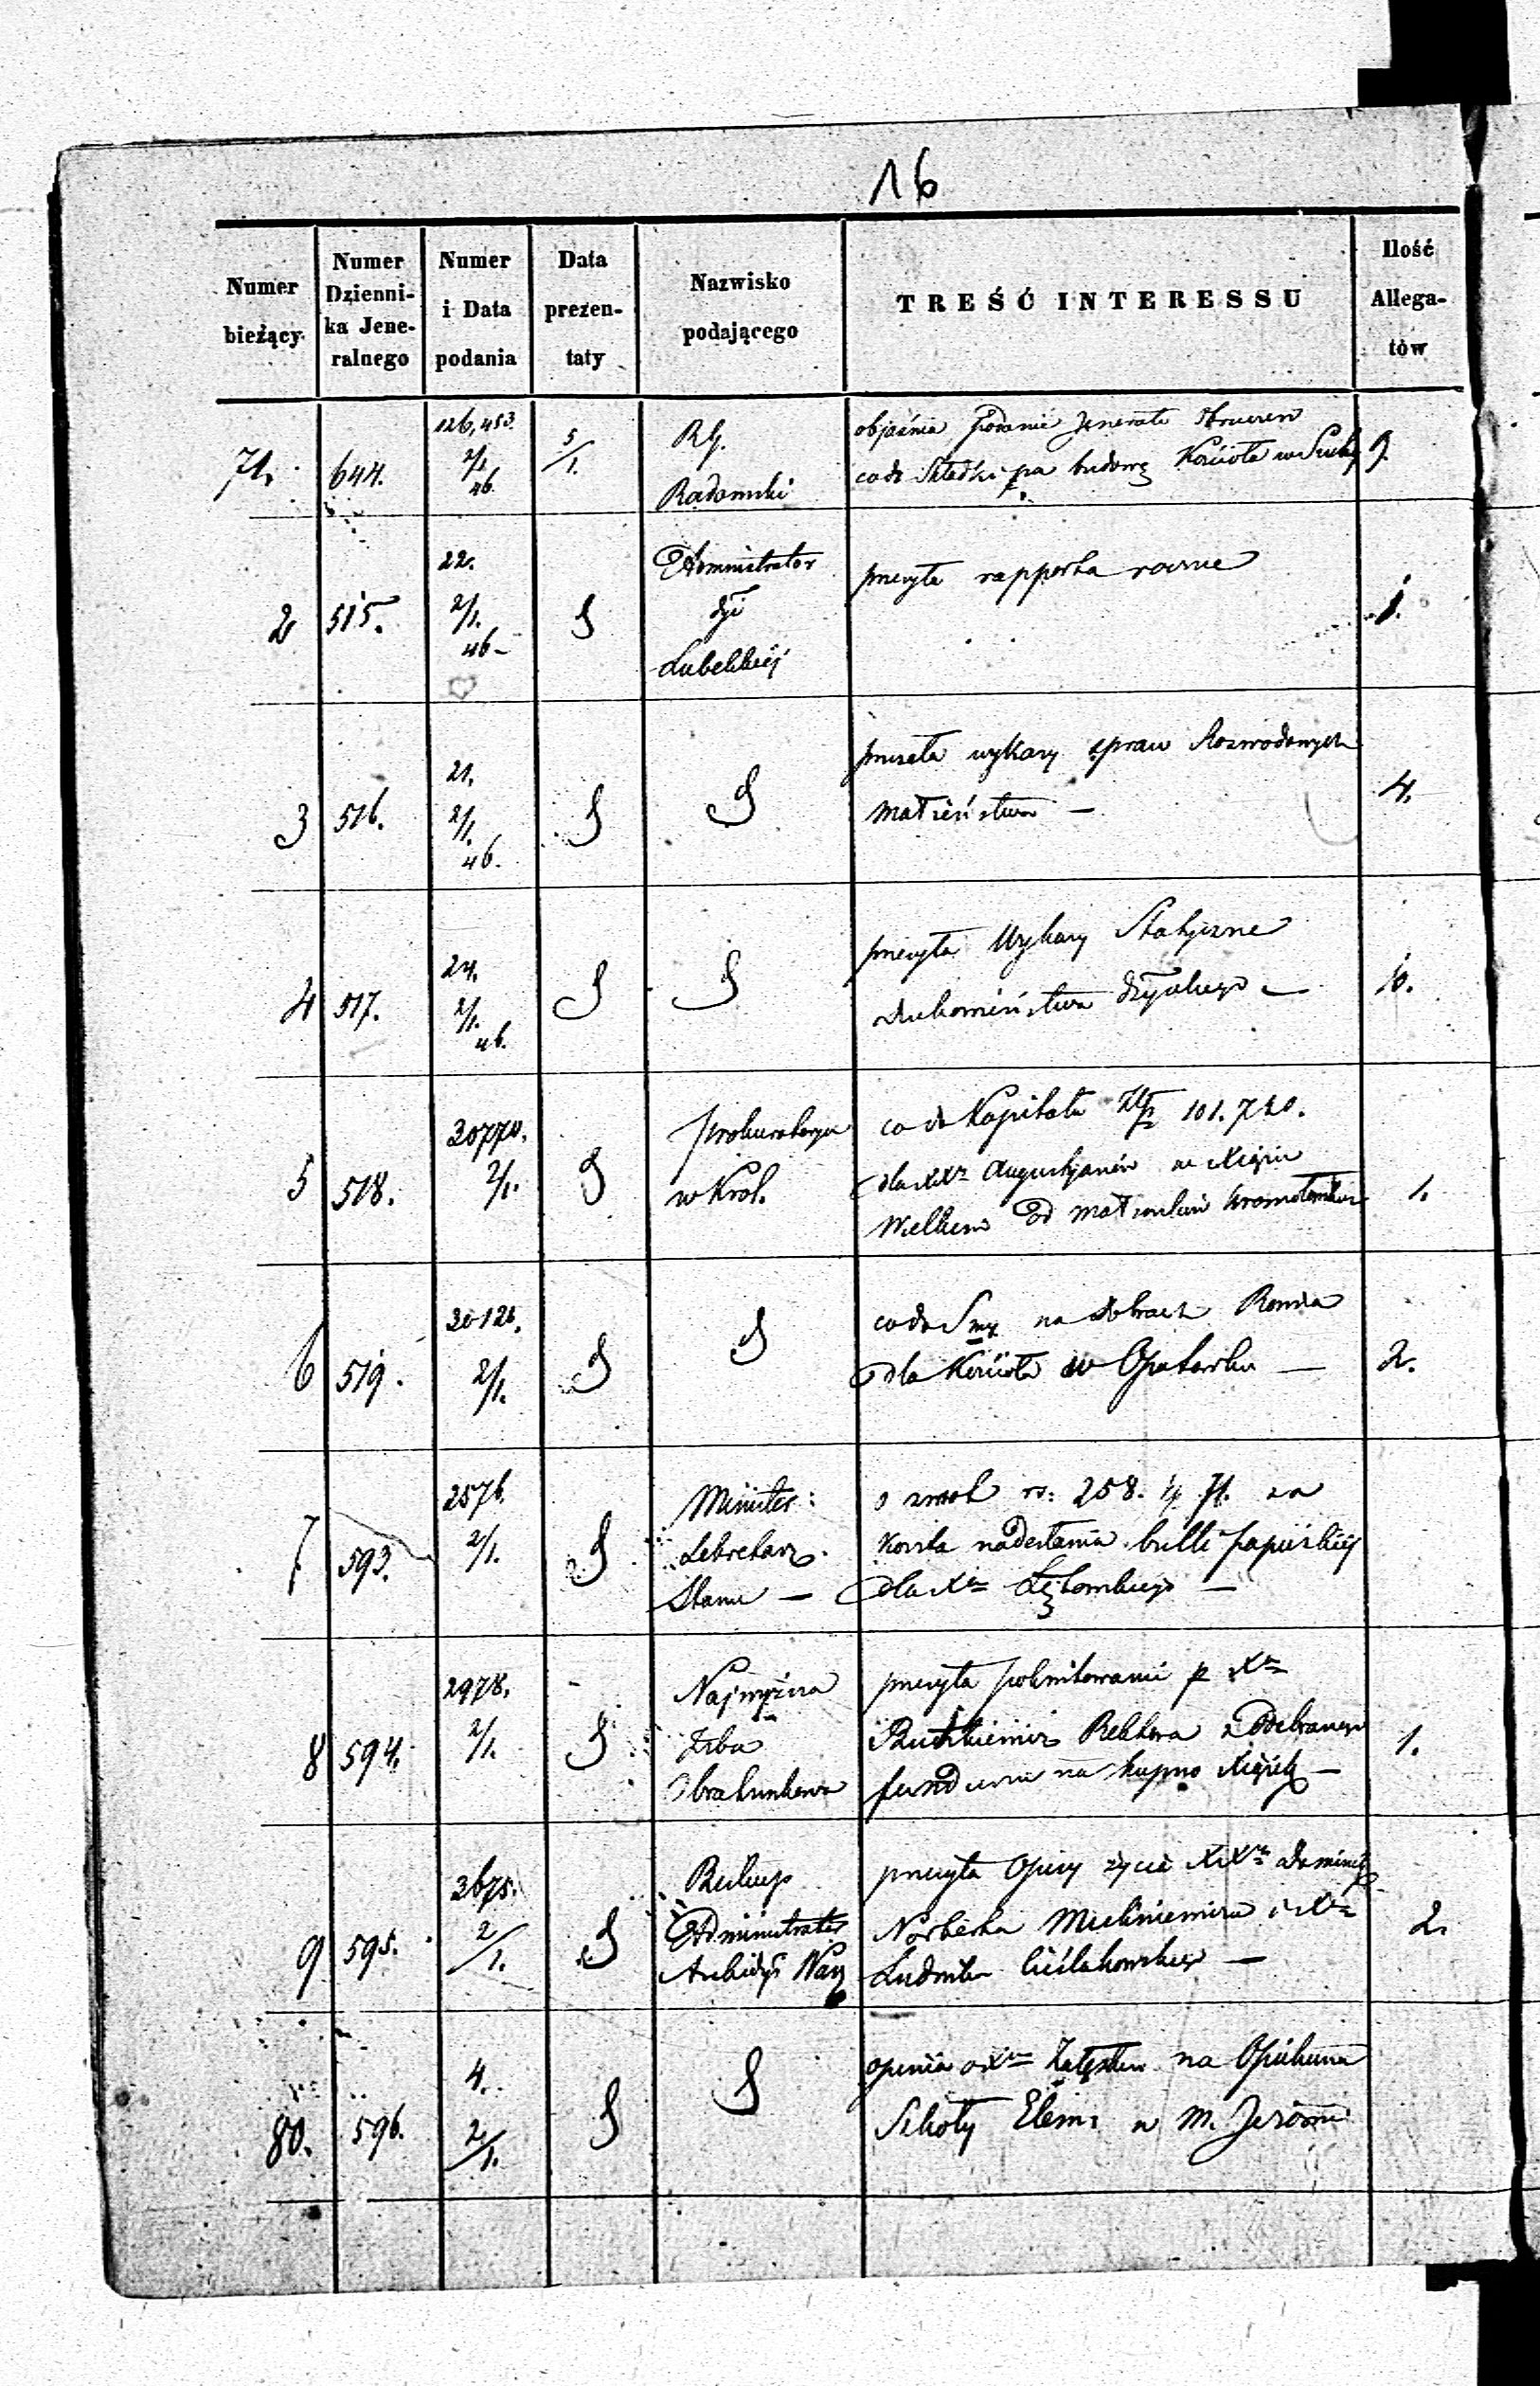 16
Numer bieżący
Numer Dzienni- ka Jene- ralnego
Numer i Data podania
Data prezen- taty
Nazwisko podającego
TREŚĆ INTERESSU
Ilość Allega- tów
71. 644. 126,453. 2/1 46. 5/1. R.G. Radomski
objaśnia podanie Jenerała
co do Składki na budowę Kościoła w 9.
2 515. 22. 2/1. 46 Administrator Dyi Lubelskiej
przesyła rapporta roczne 1.
3 516. 21. 2/1. 46.
przesyła wykazy spraw Rozwodowych
małżeństwa — 4.
4 517. 24. 2/1. 46.
przesyła Wykazy Statyczne
Duchowieństwa Dyego — 10.
5 518. 30770. 2/1. Prokuratorya w Król.
co do Kapitału Złp 101.720.
dla XXr Augustyanów w Książu
Wielkiem od małżonków 1.
6 519. 30126. 2/1.
co do Smy na dobrach
dla Kościoła w Opatowku — 2.
7 593. 2576. 2/1. Minister: Sekretarz Stanu —
o zwrot rs: 258. 71. za
koszta nadesłania bulli papieskiej
dla Xa —
8 594. 2978. 2/1. Najwyższa Izba Obrachunkowa
przesyła pokwitowanie p Xa
Rektora z Odebranego
funduszu na kupno Książek — 1.
9 595. 3675. 2/1. Biskup Administrator Archidyi War
przesyła Opisy życia XXży
Norberta i Xa
Ludwika Cieślakowskiego — 2.
80. 596. 4. 2/1.
opinia o Xu na Opiekuna
Szkoły Elem: w M.